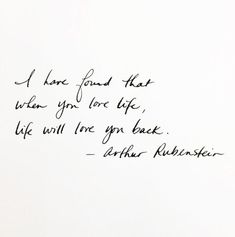 I have found that
when you love life,
life will love you back.
- Arthur Rubenstein